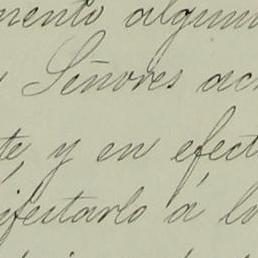 mento algun
Señores ac
te, y en efect
ifestarlo á l